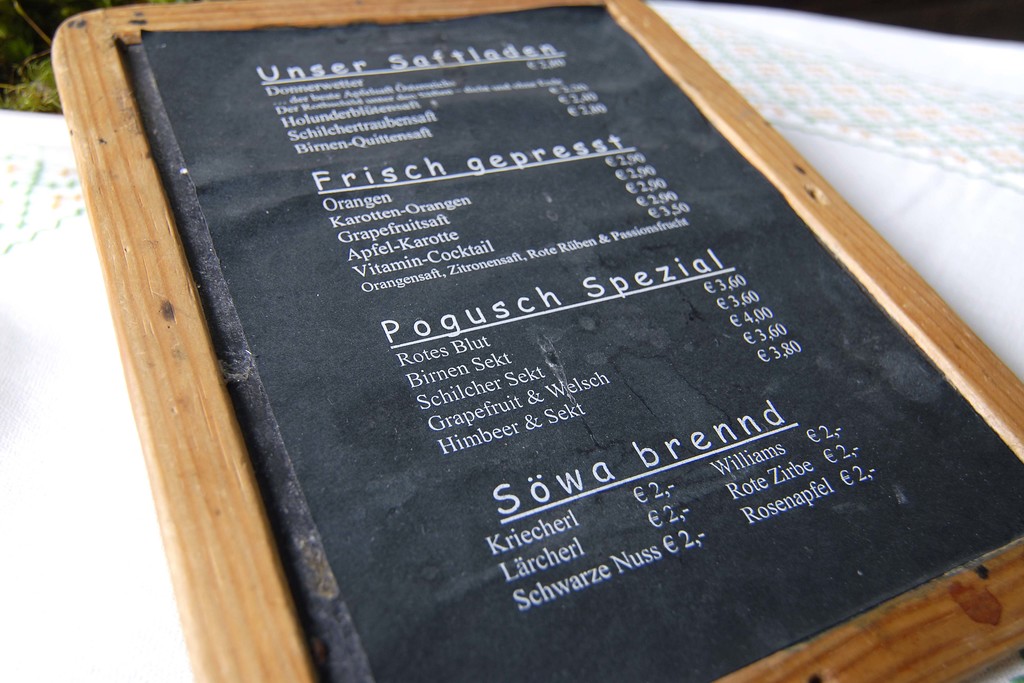 Unser Saftladen
Donnerwetter € 2,80
... der beste Apfelsaft Österreichs
Holunderblütensaft € 2,80
Schilchertraubensaft € 2,80
Birnen-Quittensaft € 2,80
Frisch gepresst
Orangen € 2,90
Karotten-Orangen € 2,90
Grapefruitsaft € 2,90
Apfel-Karotte € 2,90
Vitamin-Cocktail € 3,50
Orangensaft, Zitronensaft, Rote Rüben & Passionsfrucht
Pogusch Spezial
Rotes Blut € 3,60
Birnen Sekt € 3,60
Schilcher Sekt € 4,00
Grapefruit & Welsch € 3,60
Himbeer & Sekt € 3,80
Söwa brennd
Kriecherl € 2,- Williams € 2,-
Lärcherl € 2,- Rote Zirbe € 2,-
Schwarze Nuss € 2,- Rosenapfel € 2,-